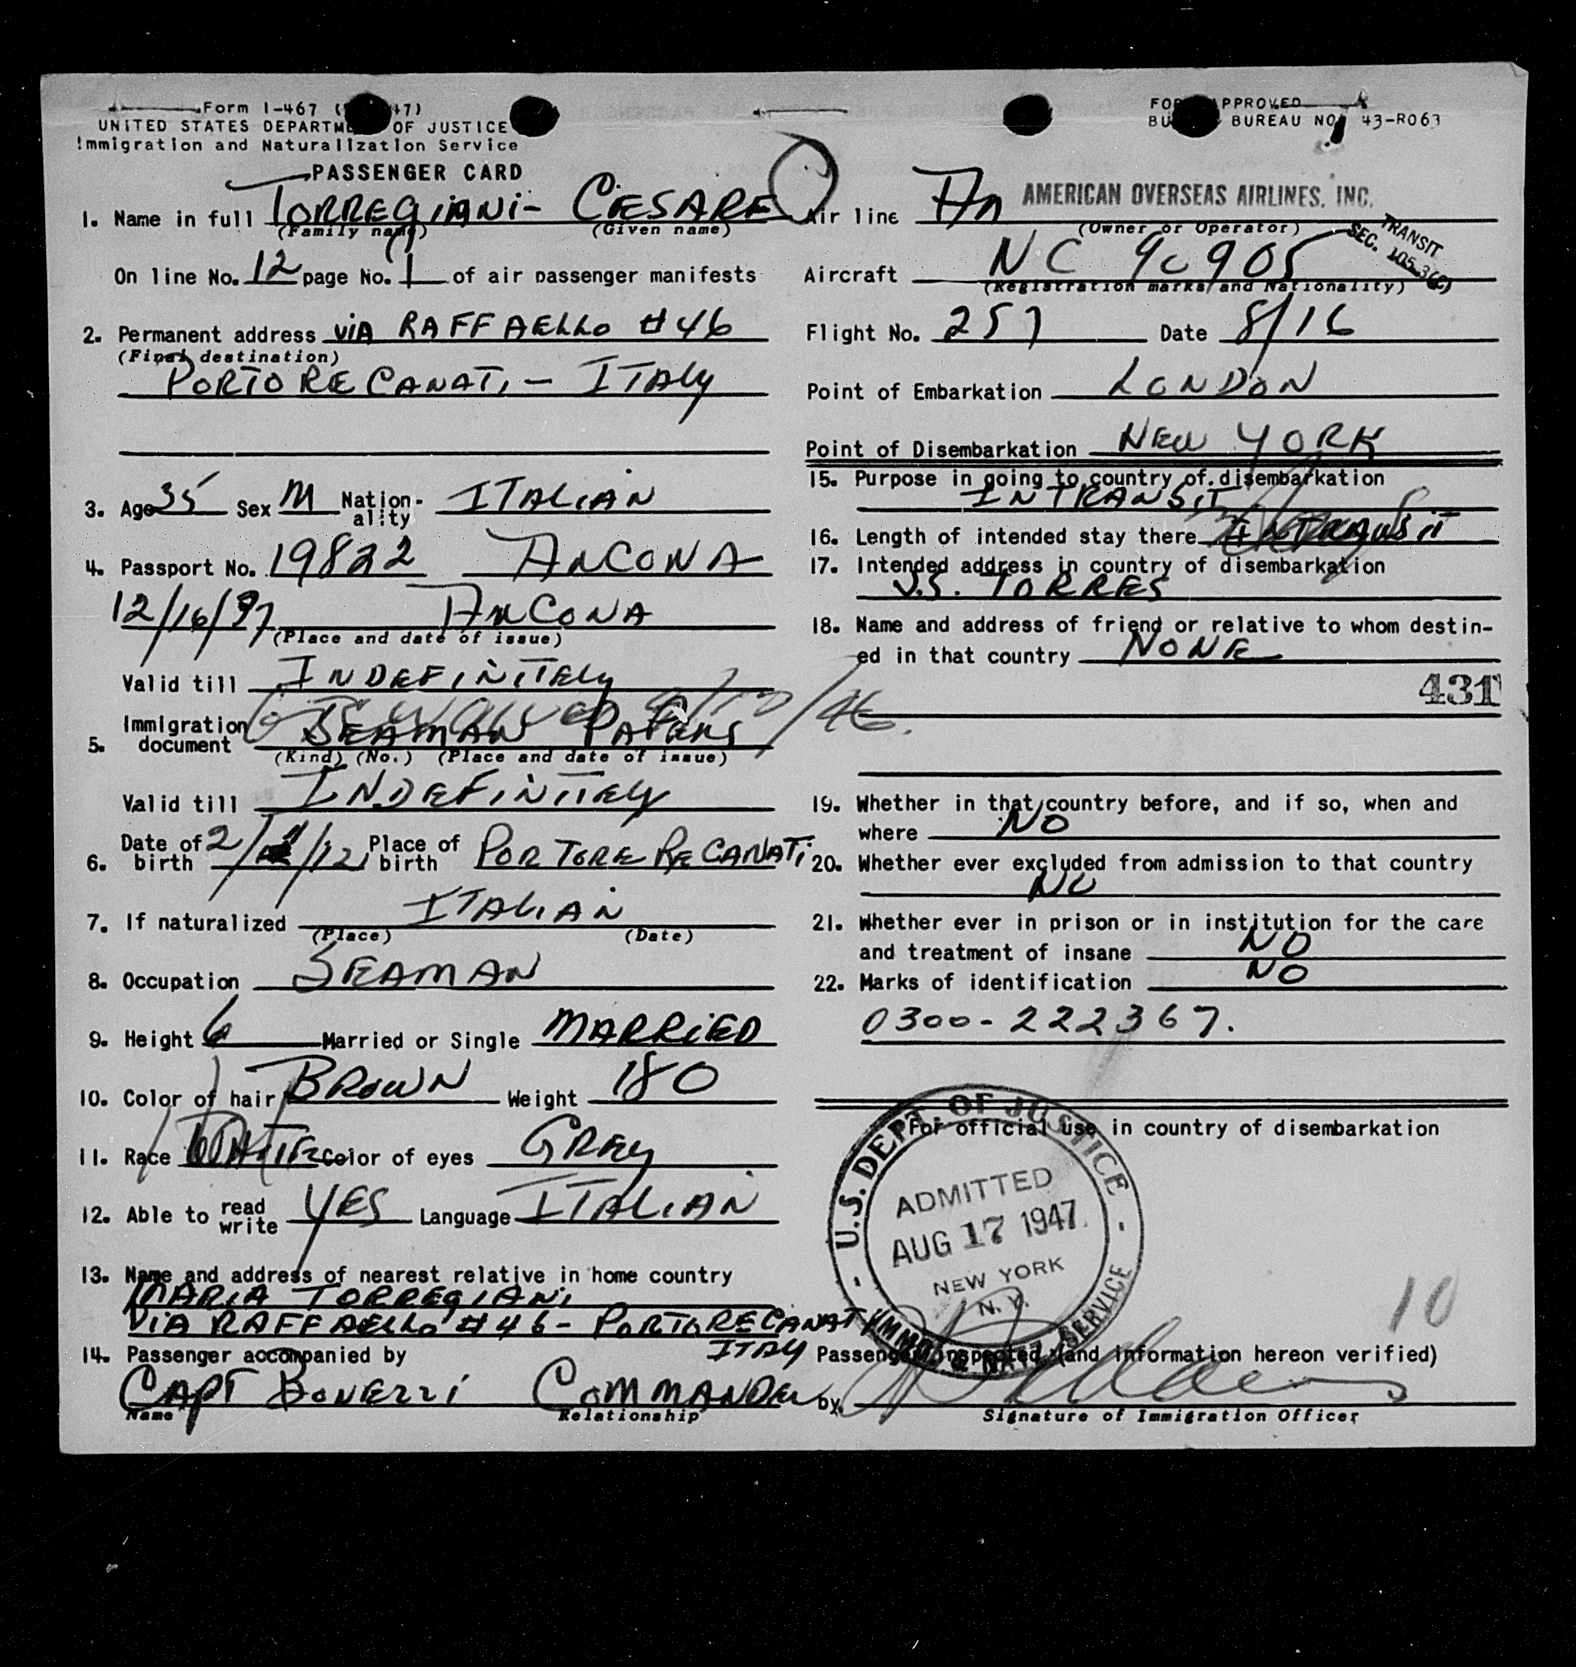 Form I-467
UNITED STATES DEPARTMENT OF JUSTICE
Immigration and Naturalization Service
PASSENGER CARD
1. Name in full TORREGIANI - CESARE
(Family name) (Given name)
On line No. 12 page No. 1 of air passenger manifests
2. Permanent address VIA RAFFAELLO #46
(Final destination)
PORTO RECANATI - ITALY
3. Age 35 Sex M Nation-ality ITALIAN
4. Passport No. 19822 ANCONA
12/16/ ANCONA
(Place and date of issue)
Valid till INDEFINITELY
5. Immigration document SEAMAN PAPERS
(Kind) (No.) (Place and date of issue)
Valid till INDEFINITELY
6. Date of birth 2/ /12 Place of birth PORTORE RECANATI
7. If naturalized ITALIAN
(Place) (Date)
8. Occupation SEAMAN
9. Height 6 Married or Single MARRIED
10. Color of hair BROWN Weight 180
11. Race WHITE Color of eyes GREY
12. Able to read write YES Language ITALIAN
13. Name and address of nearest relative in home country
MARIA TORREGIANI
VIA RAFFAELLO #46 - PORTORECANATI
ITALY
14. Passenger accompanied by
CAPT BONEZZI COMMANDER
Name Relationship
FORM APPROVED
BUREAU NO. 43-R063
Air line AMERICAN OVERSEAS AIRLINES, INC.
(Owner or Operator)
TRANSIT
SEC.
Aircraft NC 90905
(Registration marks and Nationality)
Flight No. 257 Date 8/16
Point of Embarkation LONDON
Point of Disembarkation NEW YORK
15. Purpose in going to country of disembarkation
IN TRANSIT
16. Length of intended stay there IN TRANSIT
17. Intended address in country of disembarkation
S.S. TORRES
18. Name and address of friend or relative to whom destin-
ed in that country NONE
431
19. Whether in that country before, and if so, when and
where NO
20. Whether ever excluded from admission to that country
NO
21. Whether ever in prison or in institution for the care
and treatment of insane NO
22. Marks of identification NO
0300-222367.
For official use in country of disembarkation
U.S. DEPT. OF JUSTICE
ADMITTED
AUG 17 1947
NEW YORK
N.Y.
IMMIG. & NATZ. SERVICE
10
Passenger inspected (and information hereon verified)
by
Signature of Immigration Officer